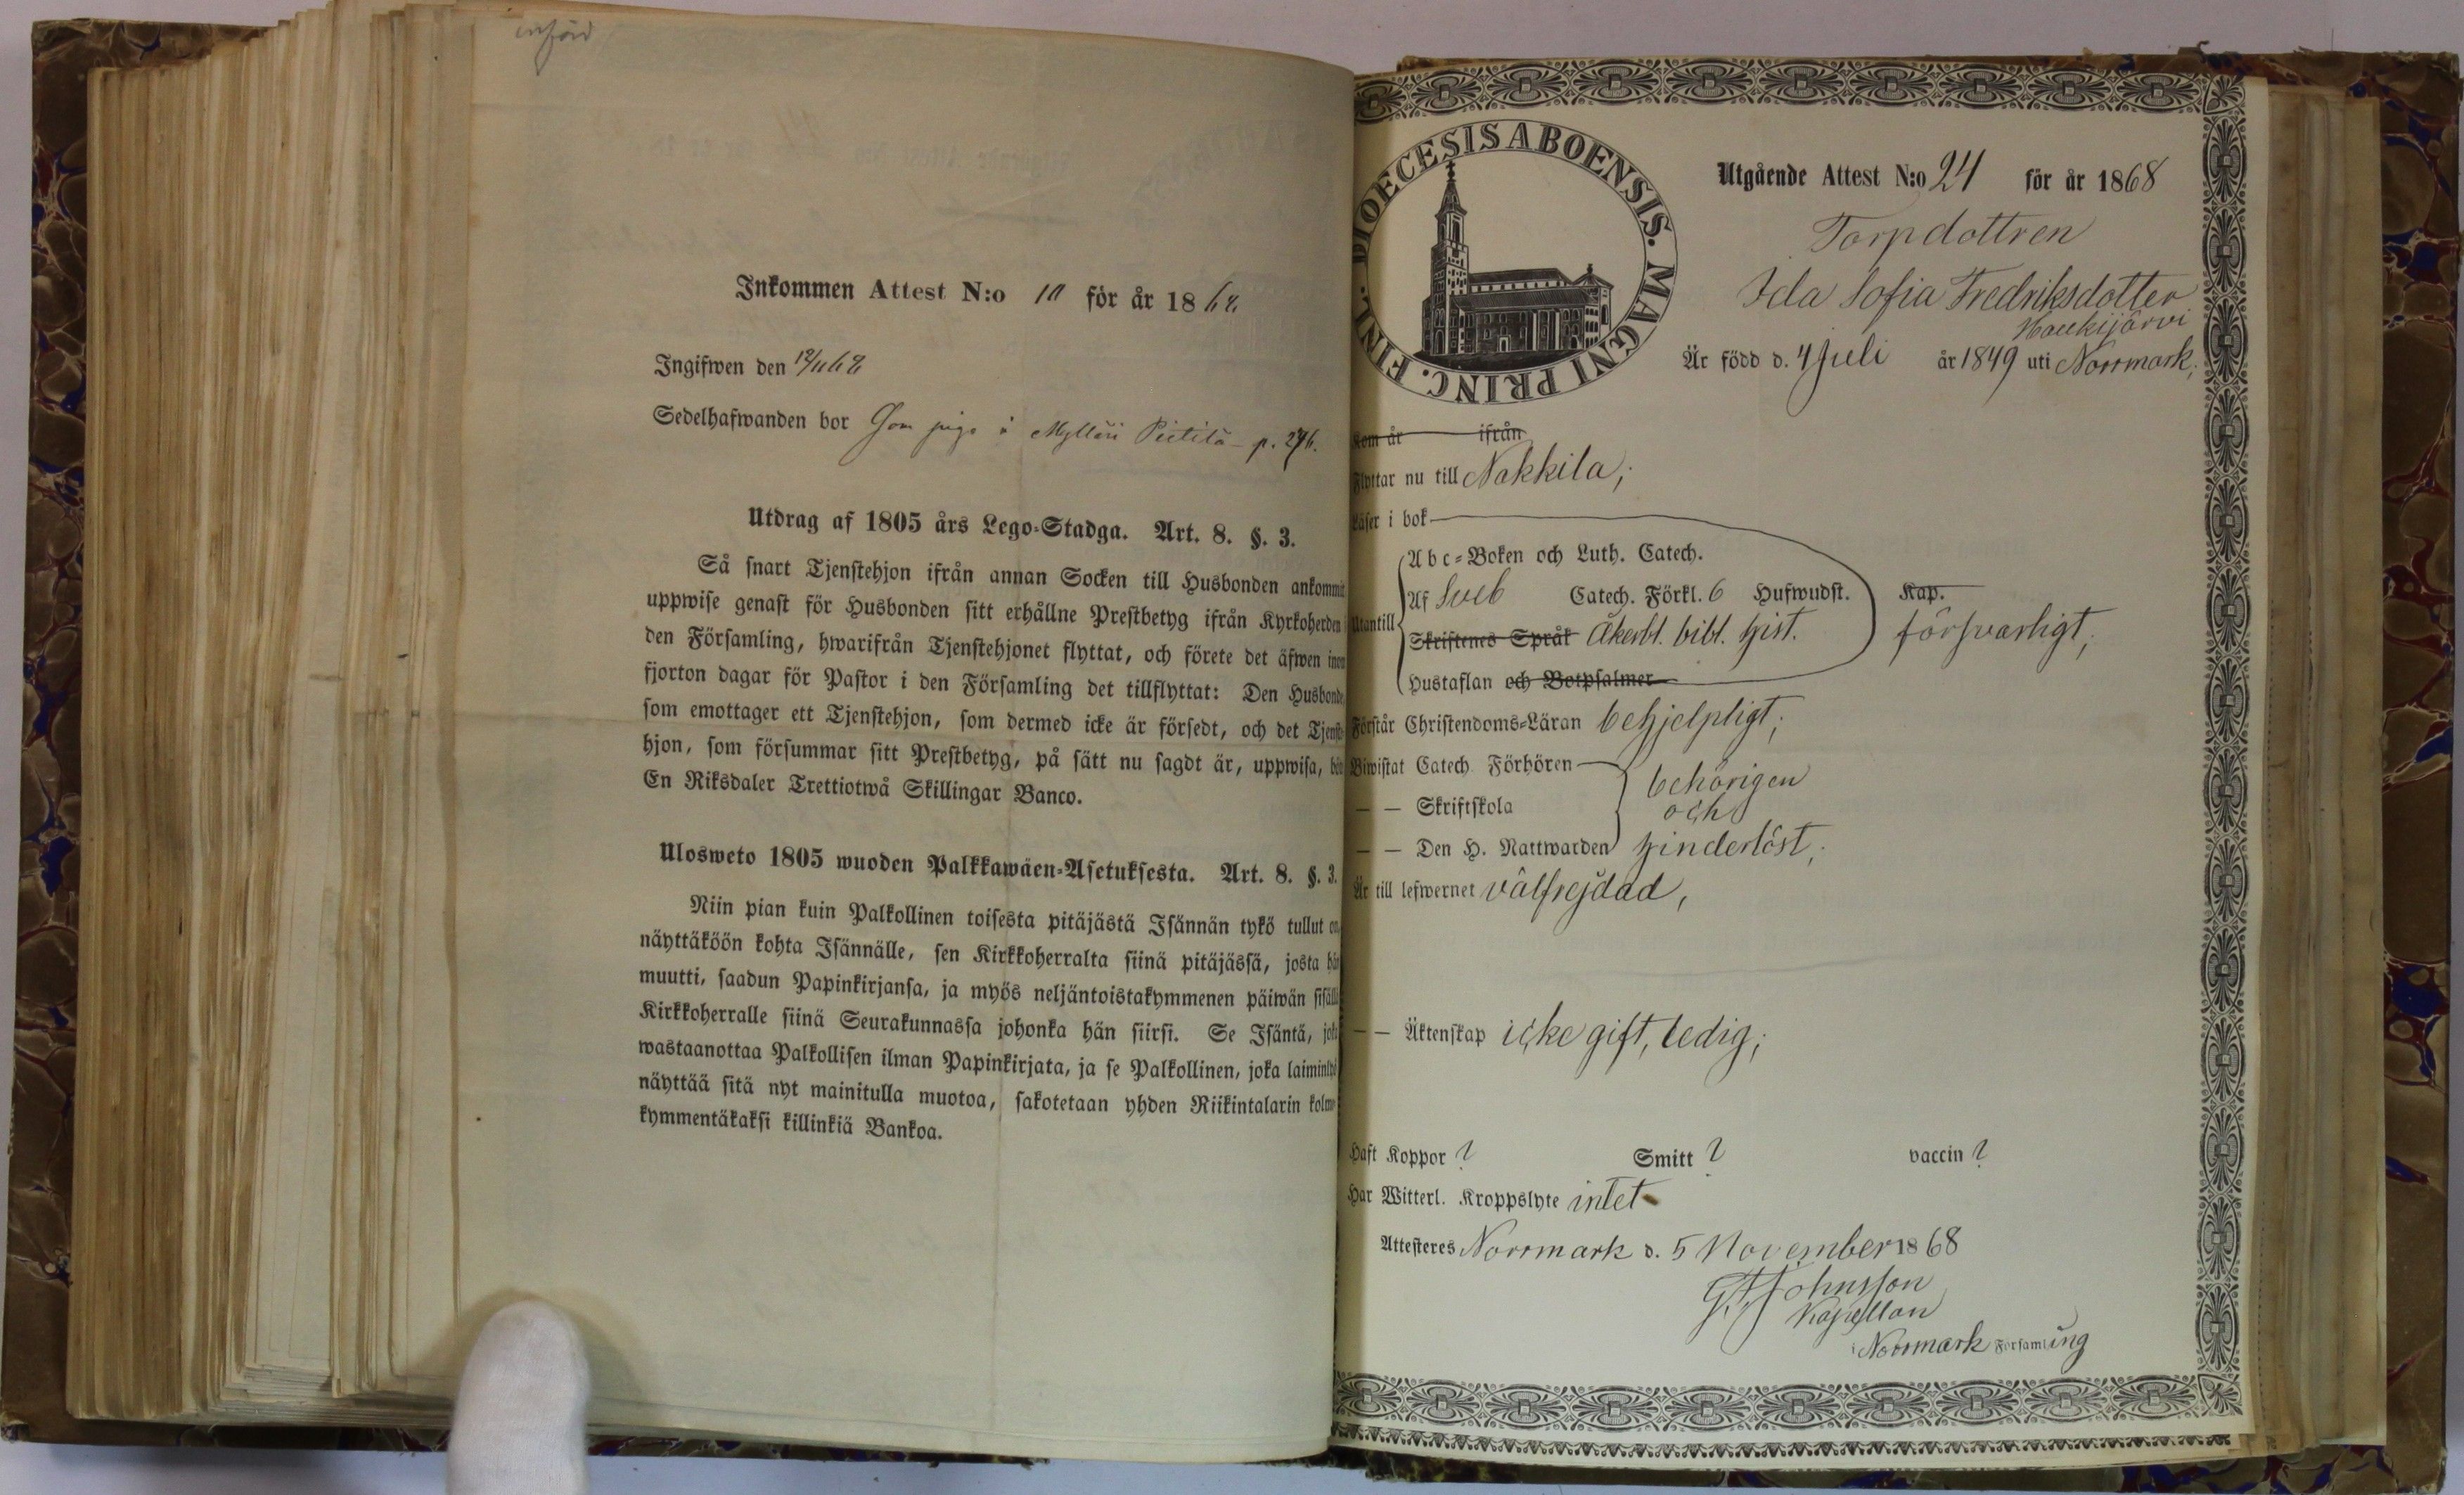 införd
Inkommen Attest N:o 10 för år 1868
Ingifwen den 12/11 68
Sedelhafwanden bor Som piga i Mylläri Pietilä p. 276.
Utdrag af 1805 års Lego-Stadga. Art. 8. §. 3.
Så snart Tjenstehjon ifrån annan Socken till Husbonden ankommit
uppwise genast för Husbonden sitt erhållne Prestbetyg ifrån Kyrkoherden
den Församling, hwarifrån Tjenstehjonet flyttat, och förete det äfwen inom
fjorton dagar för Pastor i den Församling det tillflyttat: Den Husbonde,
som emottager ett Tjenstehjon, som dermed icke är försedt, och det Tjenste-
hjon, som försummar sitt Prestbetyg, på sätt nu sagdt är, uppwisa,
En Riksdaler Trettiotwå Skillingar Banco.
Ulosweto 1805 wuoden Palkkawäen-Asetuksesta. Art. 8. §. 3.
Niin pian kuin Palkollinen toisesta pitäjästä Isännän tykö tullut on,
näyttäköön kohta Isännälle, sen Kirkkoherralta siinä pitäjässä, josta hän
muutti, saadun Papinkirjansa, ja myös neljäntoistakymmenen päiwän sisällä
Kirkkoherralle siinä Seurakunnassa johonka hän siirsi. Se Isäntä, joka
wastaanottaa Palkollisen ilman Papinkirjata, ja se Palkollinen, joka laiminlyö
näyttää sitä nyt mainitulla muotoa, sakotetaan yhden Riikintalarin kolme-
kymmentäkaksi killinkiä Bankoa.
DIOECESIS ABOENSIS. MAGNI PRINC. FINL.
Utgående Attest N:o 24 för år 1868
Torpdottren
Ida Sofia Fredriksdotter
Haukijärvi
Är född d. 4 Juli år 1849 uti Norrmark;
Kom år ifrån
Flyttar nu till Nakkila;
Läser i bok
Abc-Boken och Luth. Catech.
Utantill Af Sveb Catech. Förkl. 6 Hufwudst. Kap.
Skriftenes Språk Åkerbl. bibl. hist. försvarligt;
Hustaflan och Botpsalmer
Förstår Christendoms-Läran behjelpligt;
Biwistat Catech. Förhören behörigen
— — Skriftskola och
— — Den H. Nattwarden hinderlöst;
Är till lefwernet välfrejdad,
— — Äktenskap icke gift, ledig;
Haft Koppor ? Smitt ? vaccin ?
Har Witterl. Kroppslyte intet
Attesteres Norrmark d. 5 November 1868
G. A. Johnsson
Kapellan
i Norrmark Församling